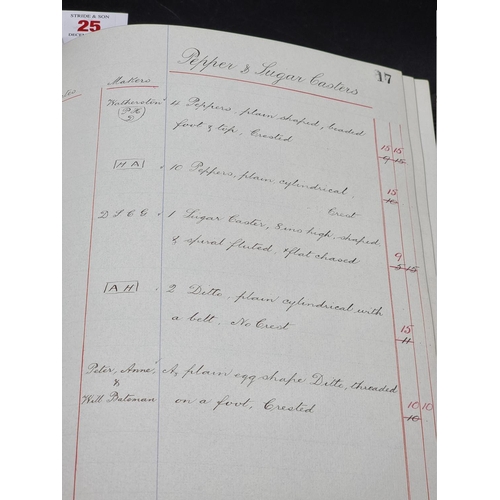 STRIDE & SON
25
17
Pepper & Sugar Casters
Makers
4 Peppers, plain shaped, beaded
foot & top, Crested
15 15
9 15
H A
10 Peppers, plain cylindrical.
Crest
15
10
D S C G
1 Sugar Caster, 8 ins high, shaped
& spiral fluted, & flat chased
9
5 15
A H
2 Ditto, plain cylindrical with
a belt. No Crest
15
11
Peter, Anne,
&
Will Bateman
A, plain egg shape Ditto, threaded
on a foot, Crested
10 10
10